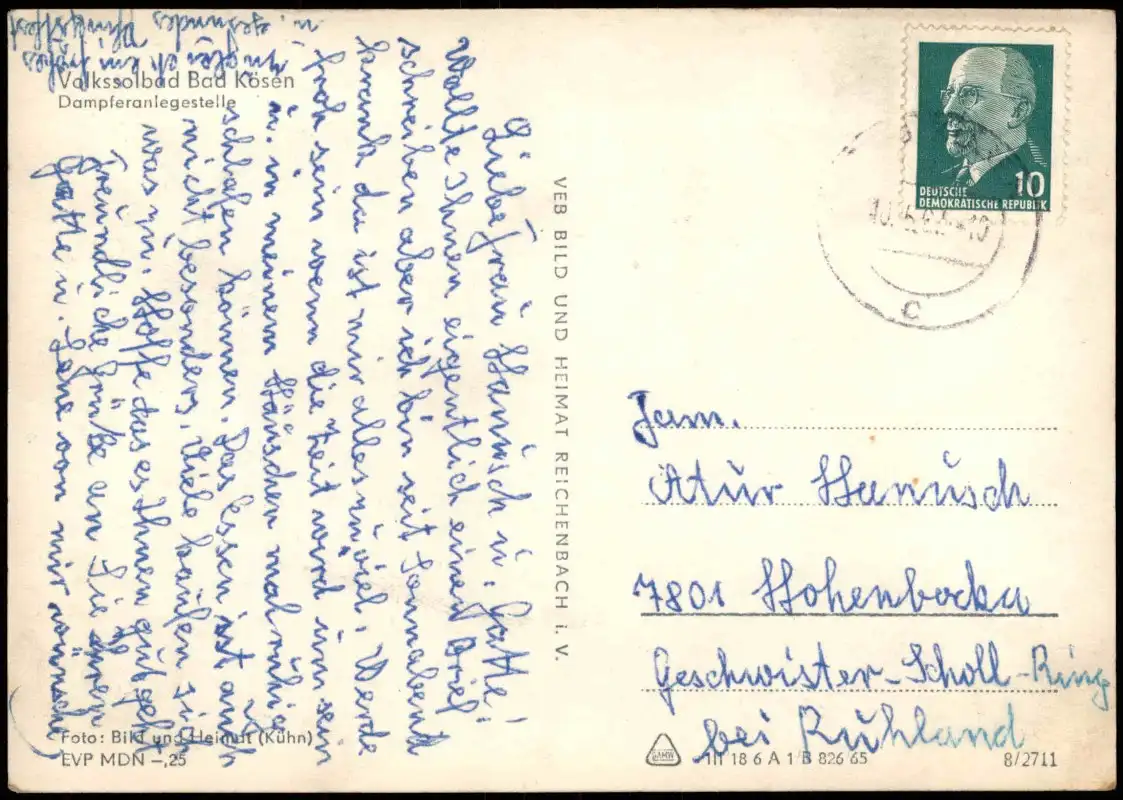 Volkssolbad Bad Kösen
Dampferanlegestelle
Liebe Frau Hanüsch u. Gatte!
Wollte Ihnen eigentlich einen Brief
schreiben aber ich bin seit Sonnabend
krank da ist mir alles zuviel. Werde
froh sein wenn die Zeit wird um sein
u. in meinem Häuschen mal ruhig
schlafen können. Das Essen ist auch
nicht besonders, viele kaufen sich
was zu. Hoffe das es Ihnen gut geht
Freundliche Grüße an Sie Ihren
Gatte u. von mir wünsch
zugleich ein frohes
u. gesundes Pfingstfest
Foto: Bild und Heimat (Kühn)
EVP MDN –,25
VEB BILD UND HEIMAT REICHENBACH i. V.
DEUTSCHE
DEMOKRATISCHE REPUBLIK
10
c
Fam.
Atur Hanüsch
7801 Hohenbocka
Geschwister-Scholl-Ring
bei Ruhland
III 18 6 A 1 B 826 65
8/2711